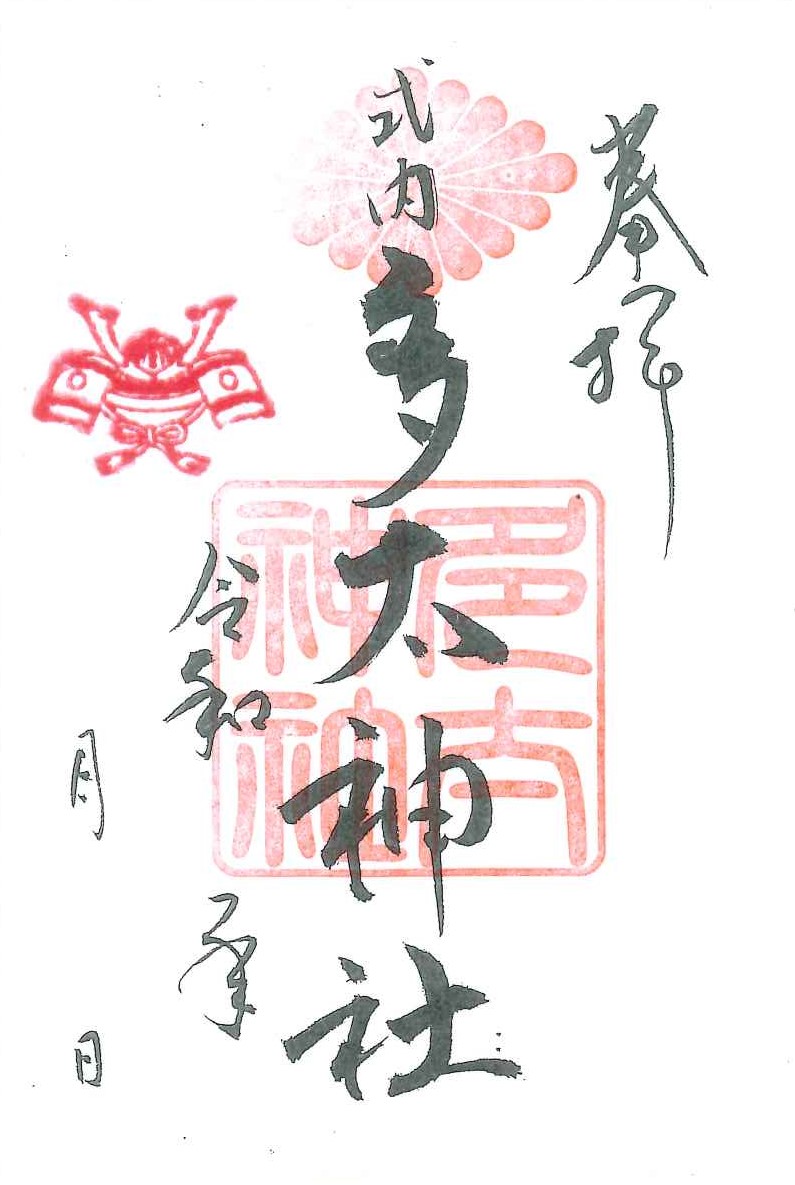 奉拝
式内 多太神社
令和 年
月 日
多太神社